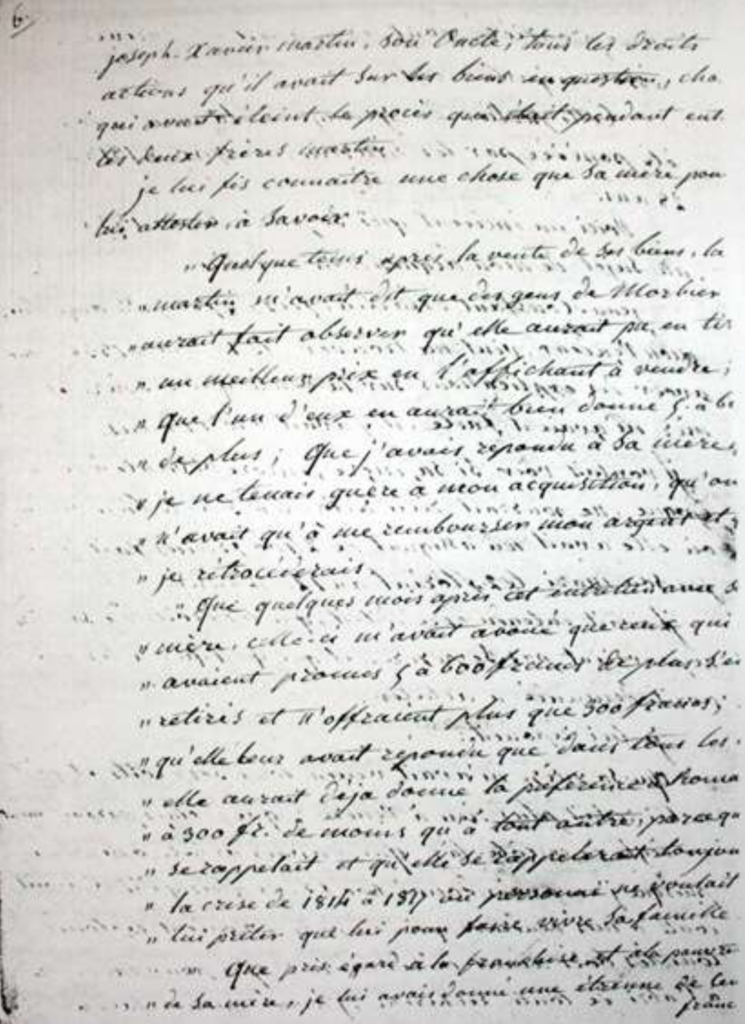 6
joseph. Xavier martin, son Oncle, tous les droits
actions qu'il avait sur les biens en question, cho
qui avait éteint le procès qui était pendant ent
les deux frères martin.
je lui fis connaitre une chose que sa mère pou
lui attester, à savoir:
" Quelque tems après la vente de ses biens, la
" martin m'avait dit que des gens de Morbier
" aurait fait observer qu'elle aurait pu en tir
" un meilleur prix en l'affichant à vendre;
" Que l'un d'eux en aurait bien donné 5 à
" de plus; Que j'avais répondu à sa mère
" je ne tenais guère à mon acquisition, qu'on
" n'avait qu'à me rembourser mon argent et
" je rétrocéderais.
" Que quelques mois après cet entretien avec
" mère, celle-ci m'avait avoué que ceux qui
" avaient promis 5 à 600 francs de plus s'é
" retirés et n'offraient plus que 300 francs;
" qu'elle leur avait répondu que dans tous les
" elle aurait déjà donné la préférence à
" à 300 fr. de moins qu'à tout autre, parcequ
" se rappelait et qu'elle se rappelerait toujou
" la crise de 1814 à 1817 où personne ne voulait
" lui prêter que lui pour faire vivre sa famille
Que pris égard à la franchise et à la pauvre
" de sa mère, je lui avais donné une étrenne de cen
franc